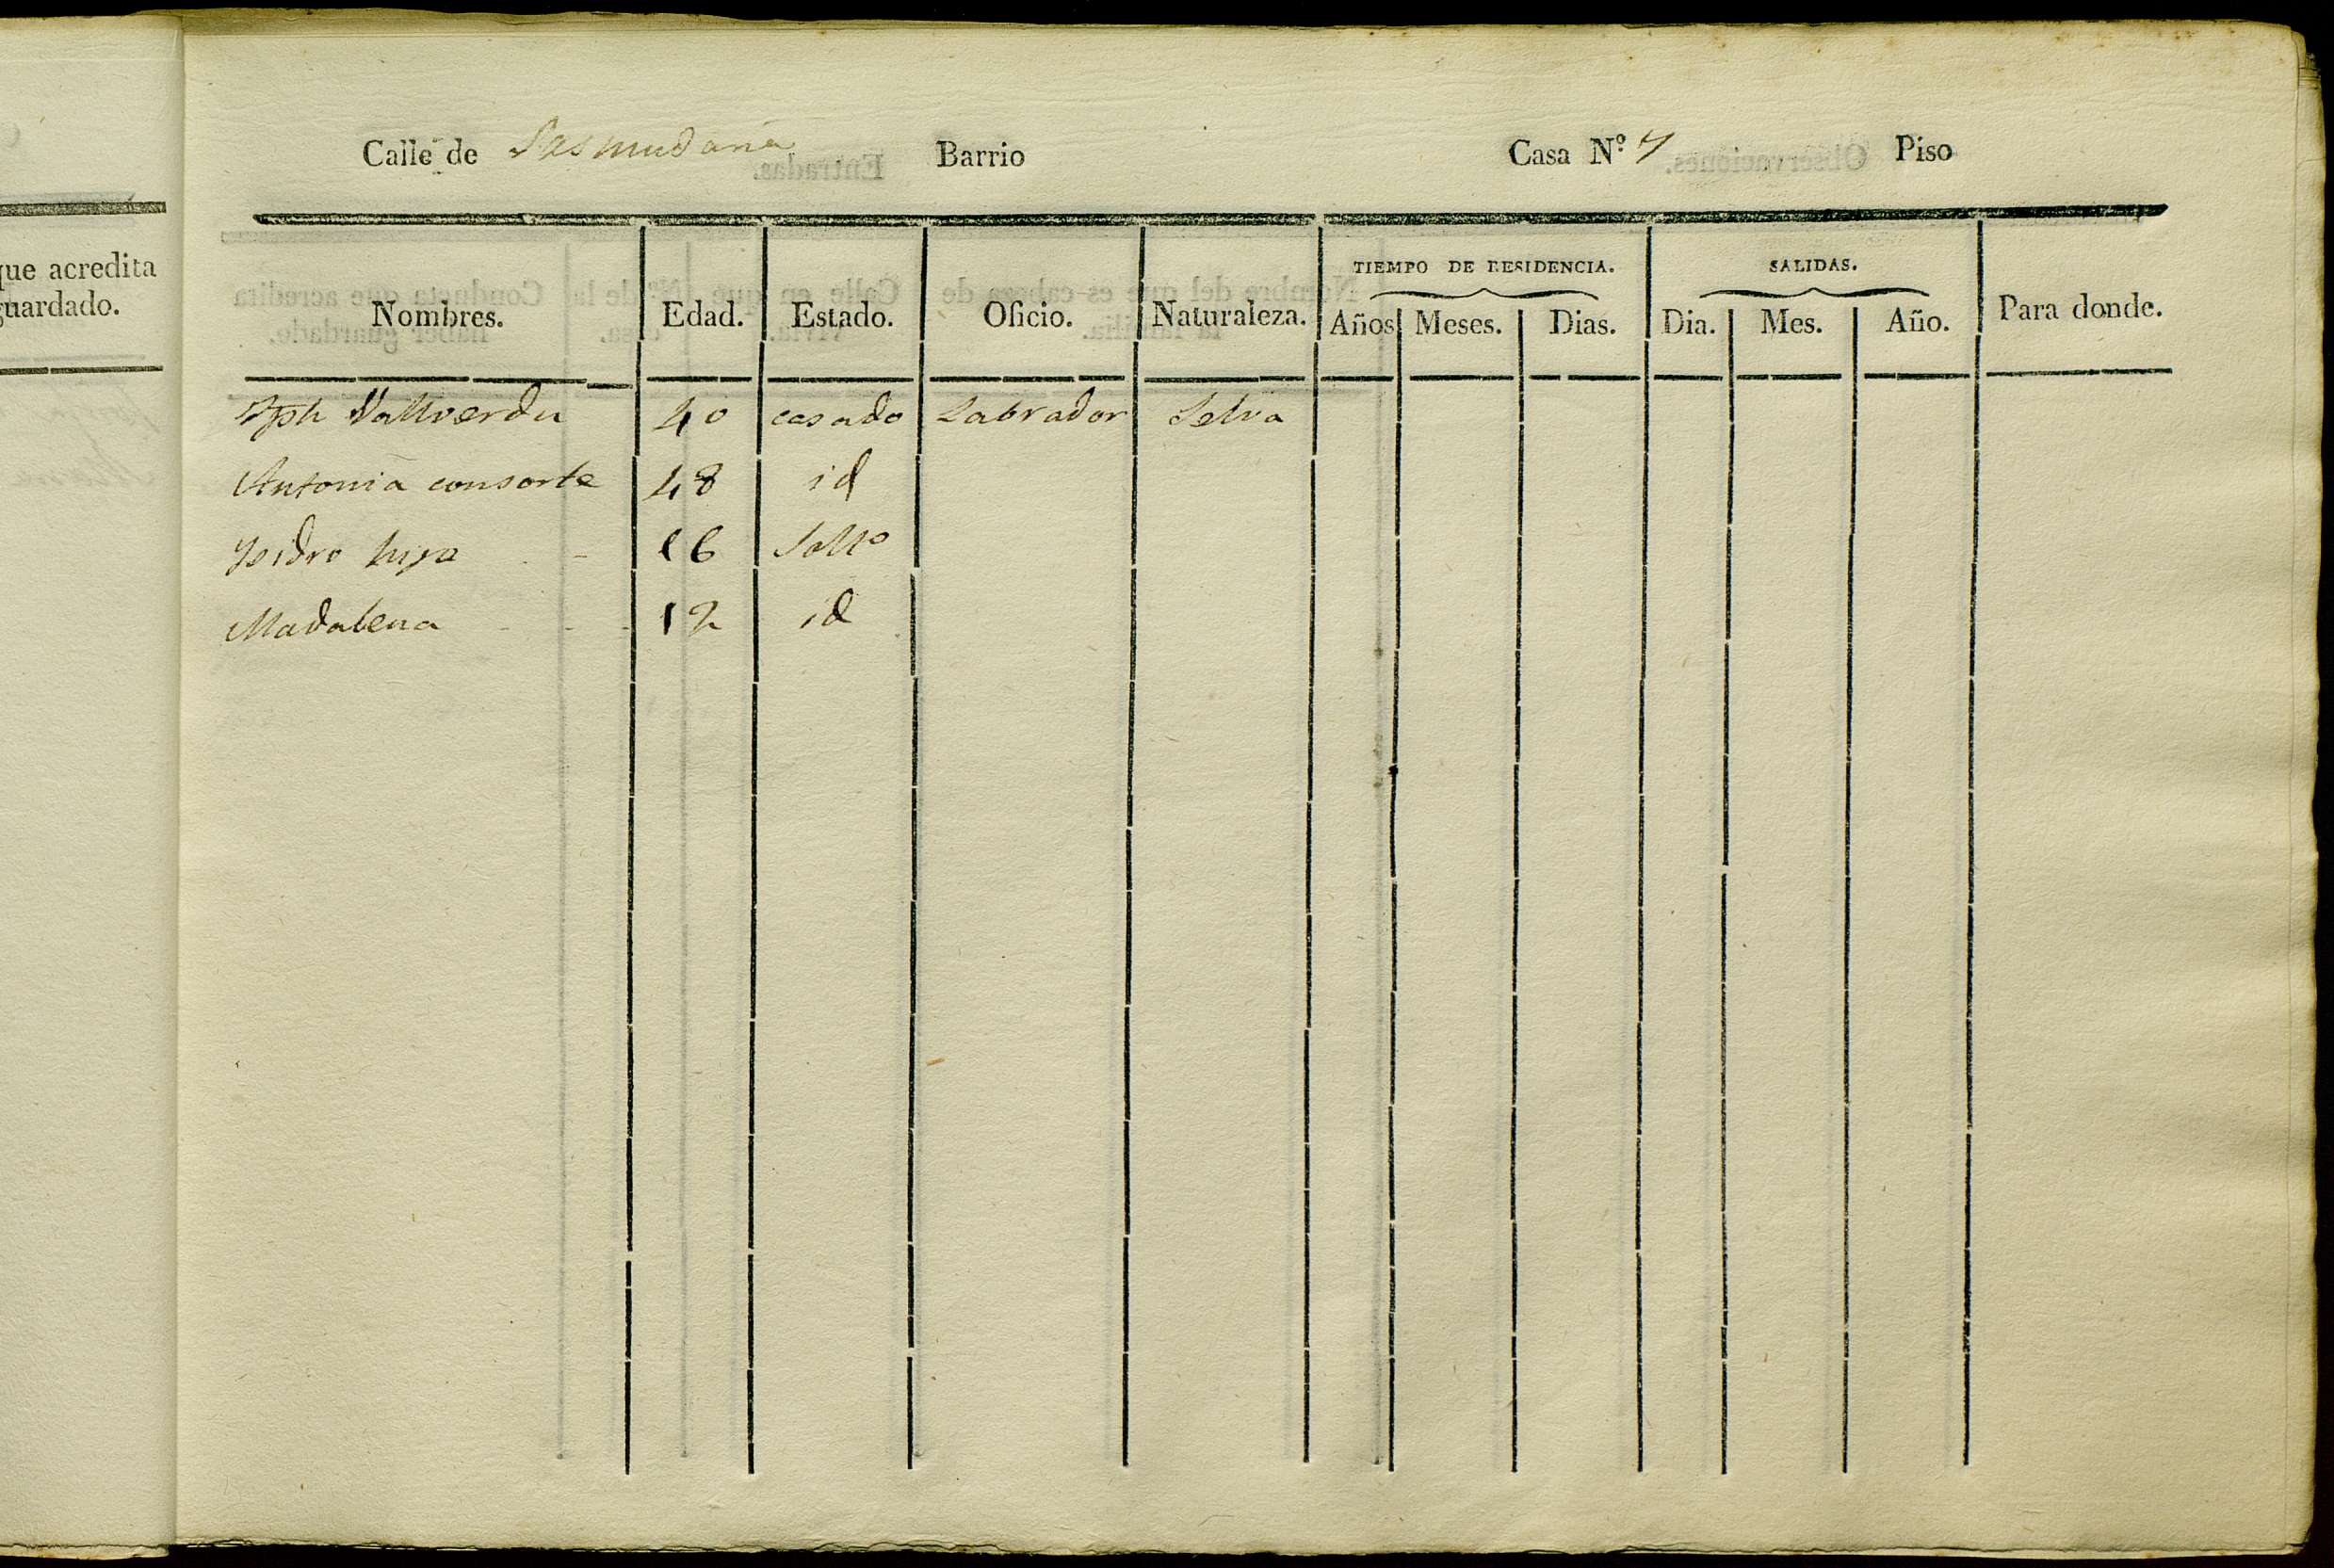 que acredita
guardado.
Calle de Barrio Casa Nº 7 Piso
Nombres. Edad. Estado. Oficio. Naturaleza. TIEMPO DE RESIDENCIA. Años Meses. Dias. SALIDAS. Dia. Mes. Año. Para donde.
Jph Vallverdu 40 casado Labrador Selva
Antonia consorte 48 id
Ysidro hijo 16 Soltº
Madalena 12 id